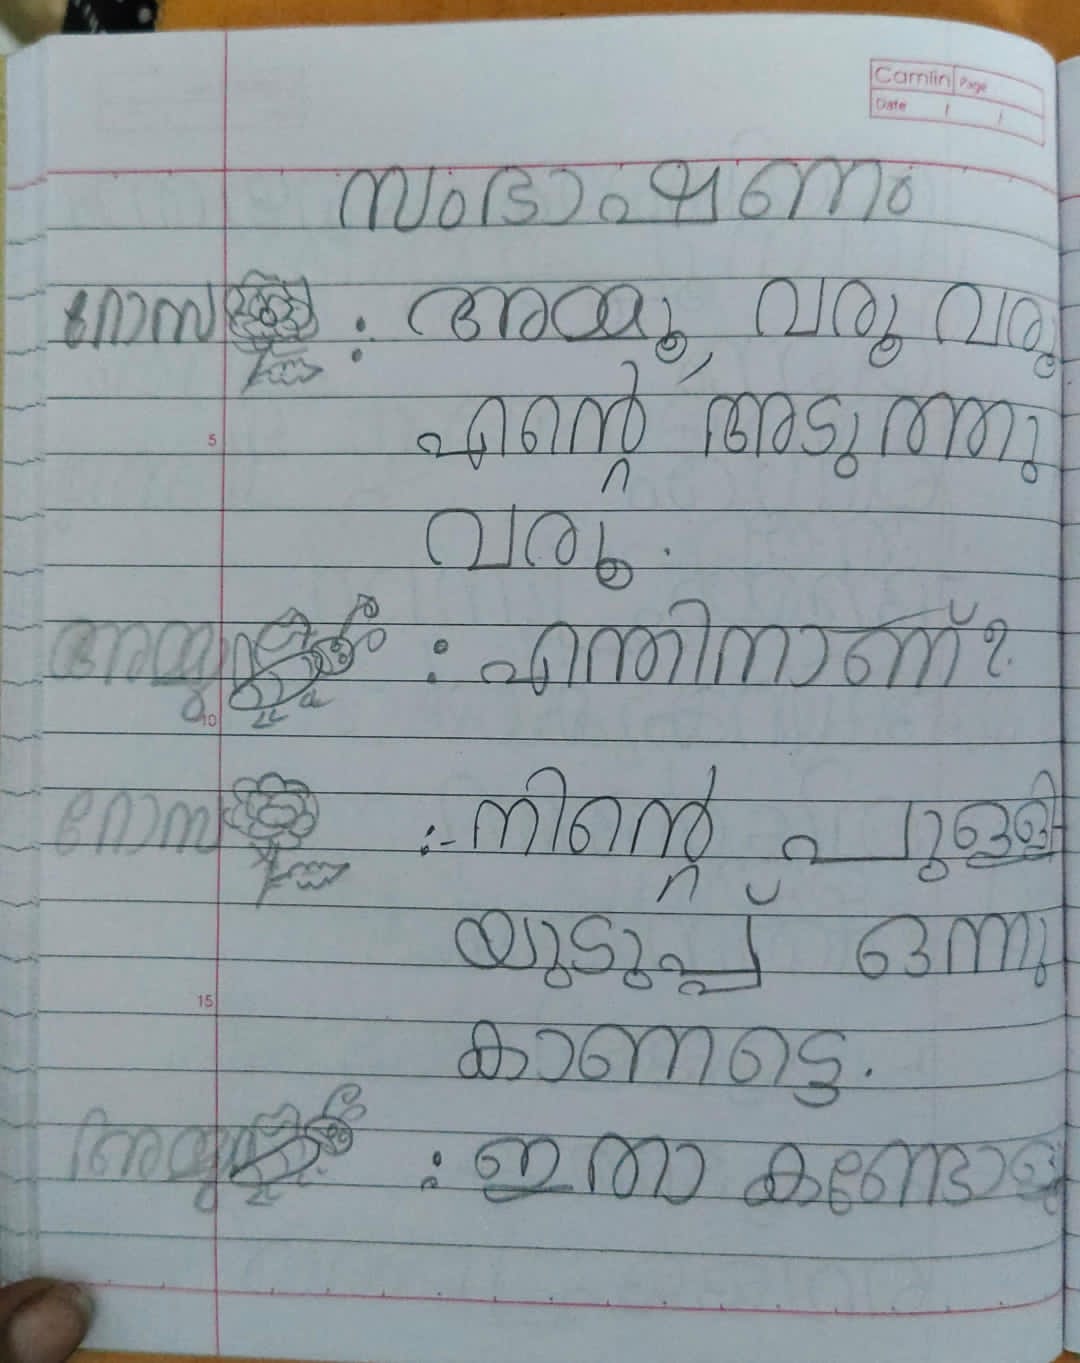 Camlin Page
Date / /
സംഭാഷണം
റോസ : അമ്മു, വരു വരു
എന്റെ അടുത്തു
5
വരു.
അമ്മു : എന്തിനാണ്?
10
റോസ :- നിന്റെ പുള്ളി
യുടുപ്പ് ഒന്നു
15
കാണട്ടെ.
അമ്മു : ഇതാ കണ്ടോളൂ